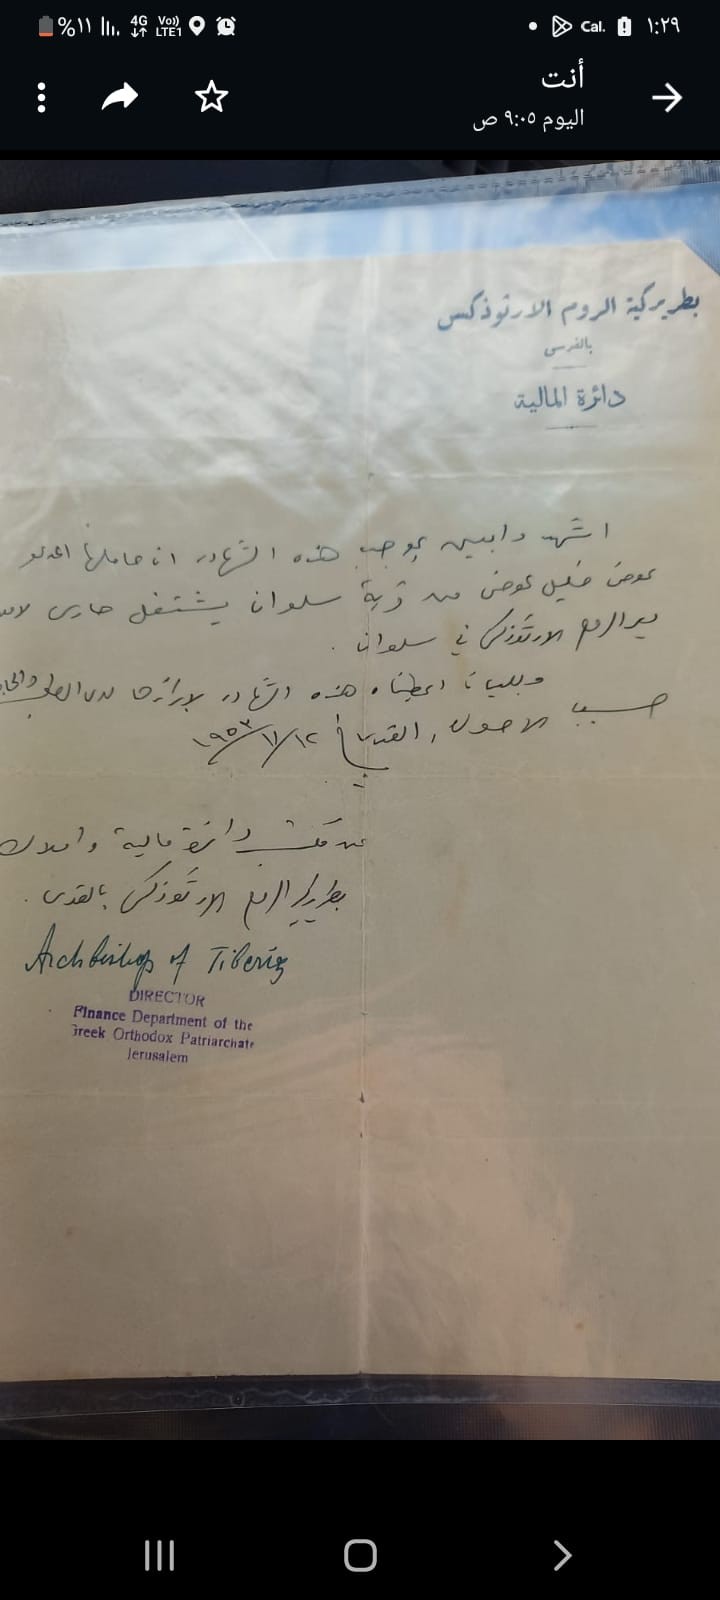 ١:٢٩ Cal. %١١ 4G Vo) LTE1
أنت
اليوم ٩:٠٥ ص
بطريركية الروم الارثوذكس
بالقدس
دائرة المالية
اشهد وابين بموجب هذه الشهادة ان حاملها المدعو
عوض خليل عوض من قرية سلوان يشتغل حارس
دير الروم الارثوذكس في سلوان .
وبطلبه اعطيناه هذه الشهادة لابرازها لدى
حسب الاصول القدس في ١٢/١١/١٩٥٣
عن مكتب دائرة مالية واملاك
بطريركية الروم الارثوذكس بالقدس .
Archbishop of Tiberias
DIRECTOR
Finance Department of the
Greek Orthodox Patriarchate
Jerusalem